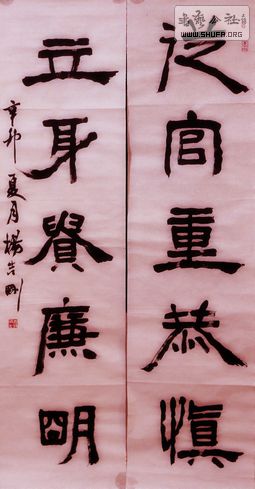 从官重恭慎
立身贵廉明
辛卯夏月杨吉刚
書法公社
WWW.SHUFA.ORG